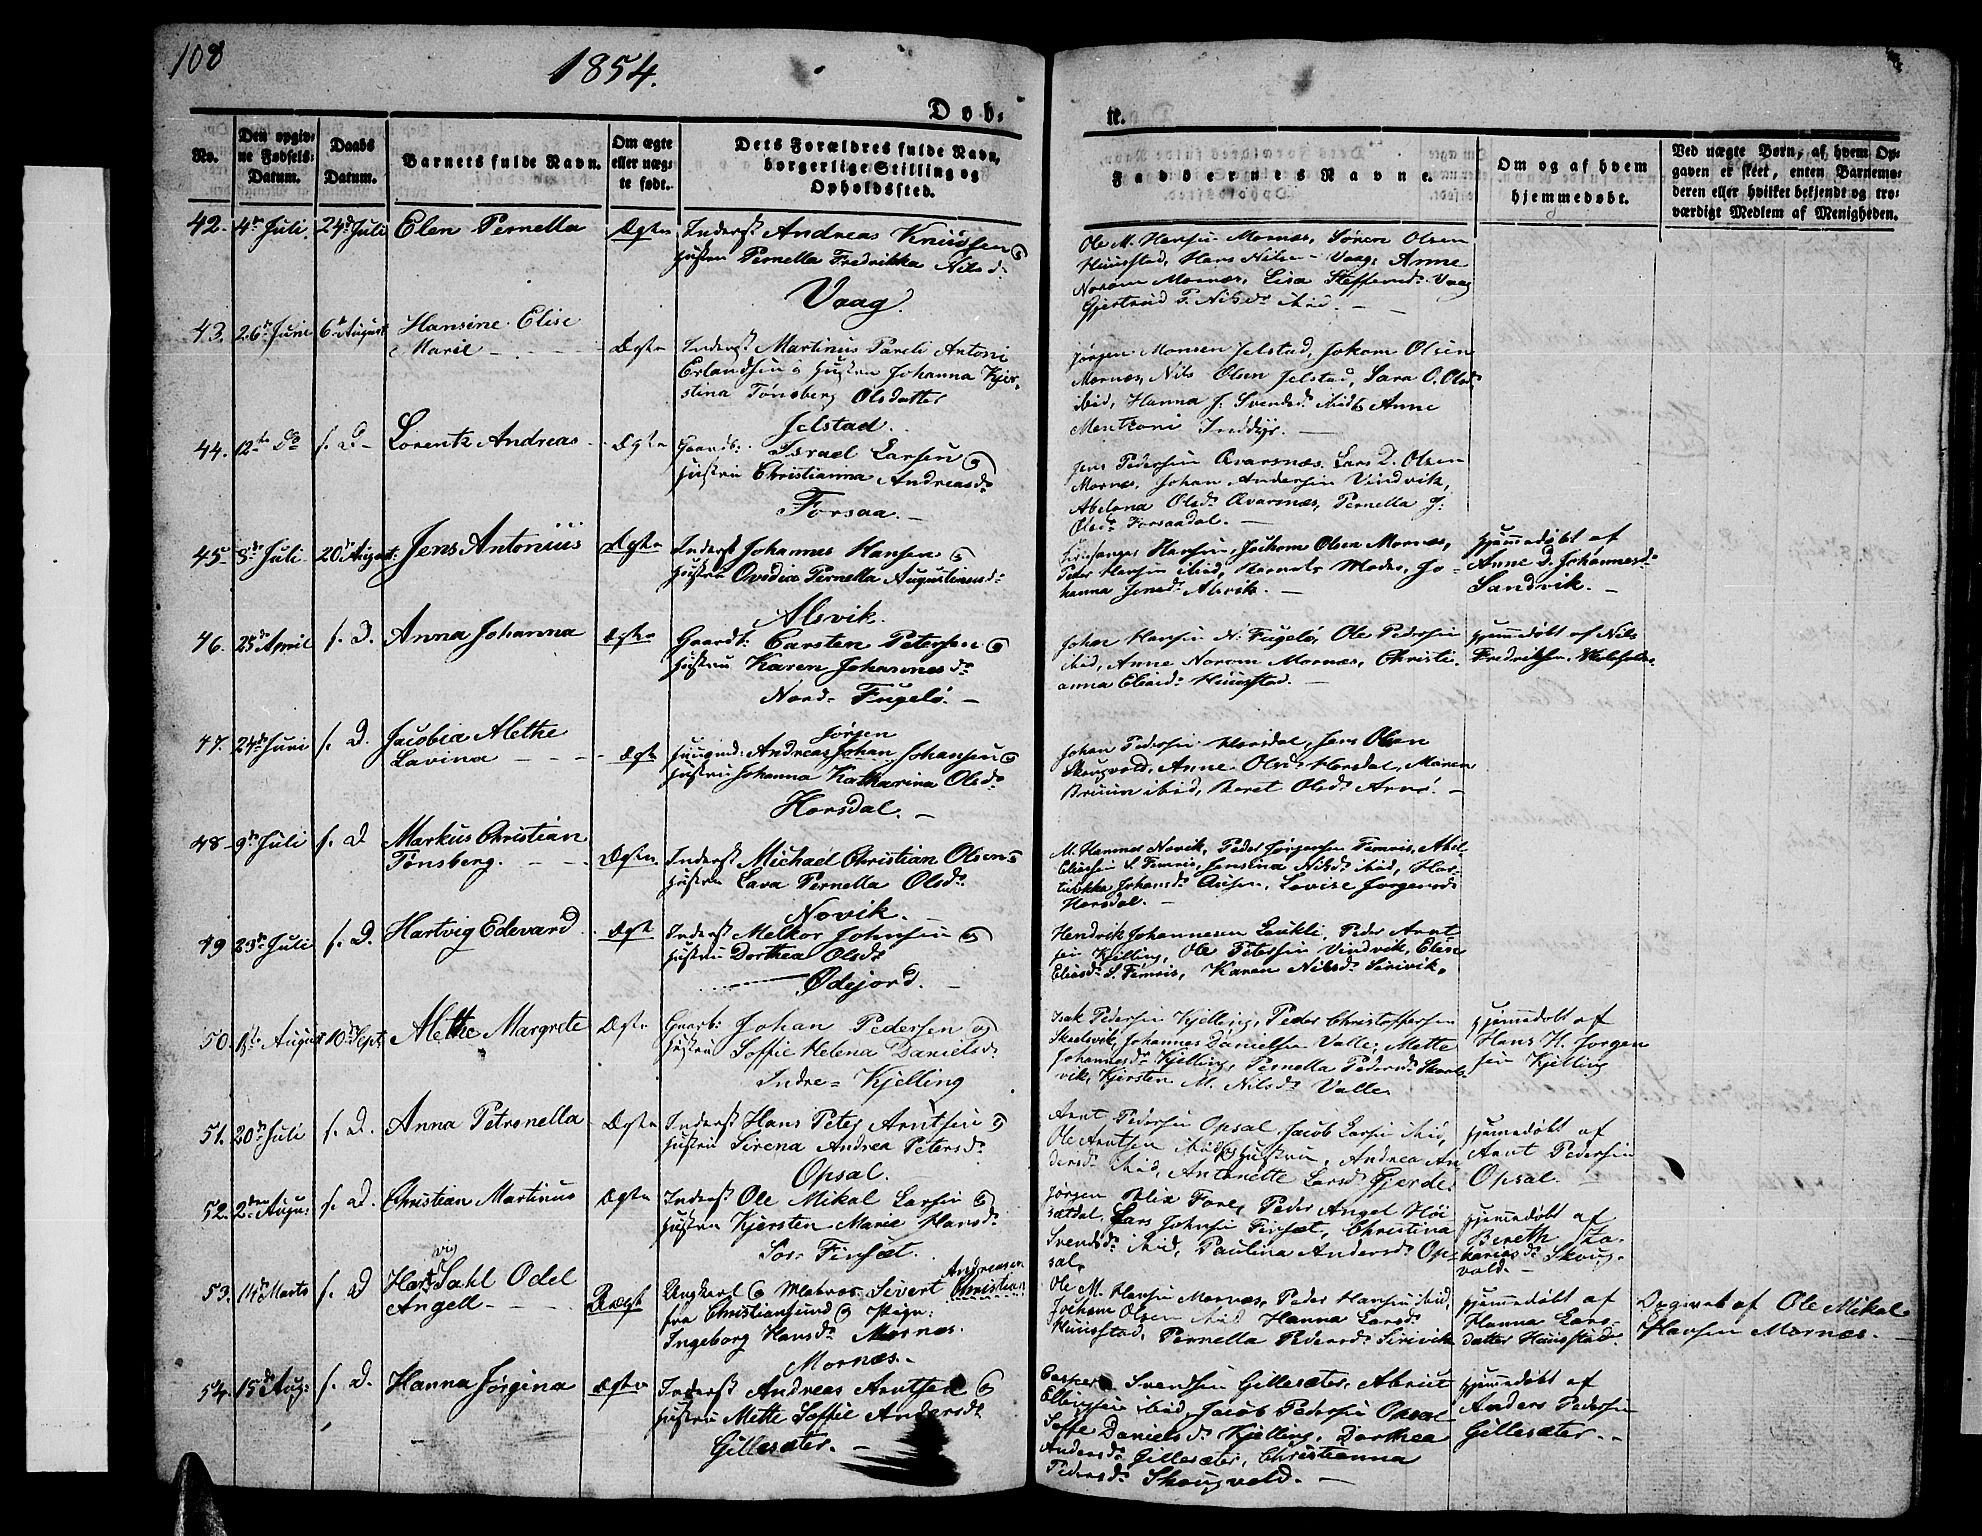 108
1854.
Døb-
te.
No.
Den opgiv-
ne Fødsels-
Datum.
Daabs
Datum.
Barnets fulde Navn.
Om ægte
eller uæg-
te født.
Dets Forældres fulde Navn,
borgerlige Stilling og
Opholdssted.
Faddernes Navne.
Om og af hvem
hjemmedøbt.
Ved uægte Børn, af hvem Op-
gaven er skeet, enten Barnemo-
deren eller hvilket bekjendt og tro-
værdigt Medlem af Menigheden.
42. 4de Juli 24de Juli Elen Pernella Ægte Inderst Andreas Knudsen og
Hustru Pernella Fredrikka Nilsd.
Vaag.
Ole M. Hansen Mornæs, Sören Olsen
Huustad, Hans Nilsen Vaag, Anne
Norom Mornæs, Lisa Steffensd. Vaag
Gjertrud P. Nilsd. ibid.
43. 26de Juni 6te August Hansine Elise
Marie Ægte Inderst Martinus Pareli Antoni
Erlandsen og Hustru Johanna Kjer-
stina Tønsberg Olsdatter
Jelstad.
Jørgen Monsen Jelstad, Jokom Olsen
Mornæs, Nils Olsen Jelstad, Sara O. Olsd.
ibid, Hanna J. Svendsd. ibid & Anne
Mentzoni
44. 12te Do s. D. Lorentz Andreas Ægte Gaardb: Israel Larsen og
Hustru Christianna Andreasd.
Forsaa.
Jens Pedersen Qvarsnæs, Lars D. Olsen
Mornæs, Johan Andersen Vindvik,
Abelona Olsd. Qvarsnæs, Pernella J.
Olsd. Forsaadal.
45. 8de Juli 20de August: Jens Antonius Ægte Inderst Johannes Hansen og
Hustru Ovidia Pernella Augustinusd.
Alsvik.
Hansen, Jochom Olsen Mornæs,
Peder Hansen ibid, Moder, Jo-
hanna Jensd. Alsvik.
Hjemmedøbt af
Anne D. Johannesd.
Sandvik.
46. 25de April s. D. Anna Johanna Ægte Gaardb: Carsten Petersen og
Hustru Karen Johannesd.
Nord-Fugelö.
Johan Hansen N. Fugelö, Ole Pedersen
ibid, Anne Norom Mornæs, Christi-
anna Eliasd. Huustad.
Hjemmedøbt af Nils
Fredriksen
47. 24de Juni s. D. Jacobia Alethe
Lavina Ægte Huusmd: Andreas Johan Jörgen Johansen og
Hustru Johanna Katharina Olsd.
Horsdal.
Johan Pedersen Horsdal, Jens Olsen
Skougvold, Anne Olsd. Horsdal, Maren
Bruun ibid, Beret Olsd. Arnö.
48. 9de Juli s. D. Markus Christian
Tønsberg. Ægte Inderst Michael Christian Olsen &
Hustru Lava Pernella Olsd.
Novik.
M. Hammer Novik, Peder Jørgensen Femris, Abel
Eliasen S. Femris, Jensina Nilsd. ibid, Har-
tvikka Johansd. Lovise Jørgensd.
Horsdal.
49. 23de Juli s. D. Hartvig Edevard Ægte Inderst Melkor Johnsen og
Hustru Dorthea Olsd.
Ødejord.
Hendrik Johannesen Laukli, Peder Arnt-
sen Kjelling, Ole Petersen Vindvik, Elise
Eliasd. S. Femris, Karen Nilsd. Sirivik.
50. 1ste August 10de Sept. Alethe Margrete Ægte Gaardb: Johan Pedersen og
Hustru Soffie Helena Danielsd.
Indre-Kjelling
Isak Pedersen Kjelling, Peder Christoffersen
Skaalsvik, Johannes Danielsen Valle, Mette
Johannesd. Kjelling, Pernella Pedersd. Skaals-
vik, Kjersten M. Nilsd. Valle.
Hjemmedøbt af
Hans H. Jørgen-
sen Kjelling
51. 20de Juli s. D. Anna Petronella Ægte Inderst Hans Peter Arntsen og
Hustru Sirena Andrea Petersd.
Opsal.
Arnt Pedersen Opsal, Jacob Larsen ibid,
Ole Arntsen ibid & Hustru, Andrea An-
dersd. ibid, Antonette Larsd. Gjerde.
Hjemmedøbt af
Arnt Pedersen
Opsal.
52. 2den Augu: s. D. Christian Martinus Ægte Inderst Ole Mikal Larsen og
Hustru Kjersten Marie Hansd.
Sör-Finsæt.
Jørgen Blix Fore, Peder Angel Höi-
sætdal, Lars Johnsen Finsæt, Christina
Svendsd. ibid, Paulina Andersd. Op-
sal.
Hjemmedøbt af
Bereth Za-
kariasd. Skoug-
vold.
53. 14de Marts s. D. Hartvig Sahl Odel
Angell Uægte Ungkarl og Matros Sivert Christian Andreasen
fra Christiansund og Pige:
Ingeborg Hansd. Mornæs.
Mornæs.
Ole M. Hansen Mornæs, Peder Hansen ibid,
Jochom Olsen ibid, Hanna Larsd.
Huustad, Pernella Pedersd. Sirivik
Hjemmedøbt af
Hanna Lars-
datter Huustad.
Opgivet af Ole Mikal
Hansen Mornæs.
54. 15de Aug: s. D. Hanna Jörgina Ægte Inderst Andreas Arntsen og
Hustru Mette Soffie Andersd.
Gillesæter.
Casper Svendsen Gillesæter,
Ellingsen ibid, Jacob Pedersen Opsal
Soffe Danielsd. Kjelling, Dorthea
Andersd. Gillesæter, Christianna
Pedersd. Skougvold.
Hjemmedøbt af
Anders Pedersen
Gillesæter.